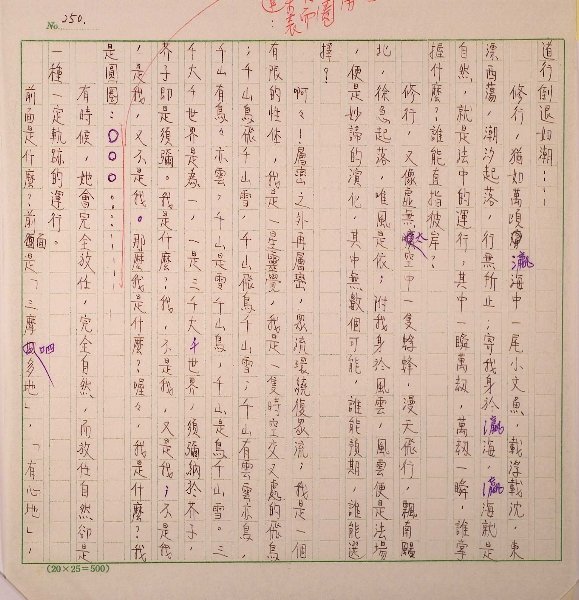 No. 250.
道行倒退如潮⋯⋯
修行，猶如萬頃瀛海中一尾小文魚，載浮載沈，東
漂西蕩，潮汐起落，行無所止；寄我身於瀛海，瀛海就是
自然，就是法中的運行，其中一瞬萬劫，萬劫一瞬，誰掌
握什麼？誰能直指彼岸？
修行，又像虛無太空中一隻蜉蜂，漫天飛行，飄南颺
北，徐急起落，唯風是依；附我身於風雲，風雲便是法場
，便是妙諦的演化，其中無數個可能，誰能預期，誰能選
擇？
啊々！層巒之外再層巒，眾流環繞復眾流；我是一個
有限的性体，我是一星靈覺，我是一隻時空交叉處的飛鳥
；千山鳥飛千山雪，千山飛鳥千山雪；千山有雲雲亦鳥，
千山有鳥々亦雲；千山是雪千山鳥，千山是鳥千山雪。三
千大千世界是為一，一是三千大千世界，須彌納於芥子，
芥子即是須彌。我是什麼？我，不是我，又是我；不是我
，是我，又不是我。那麼我是什麼？喔々，我是什麼？我
是圓圈：○○○。。⋯⋯⋯
有時候，她會完全放任，完全自然，而放任自然卻是
一種一定軌跡的運行。
前面是什麼？前面是「三摩吧多地」，「有心地」，
(20×25=500)